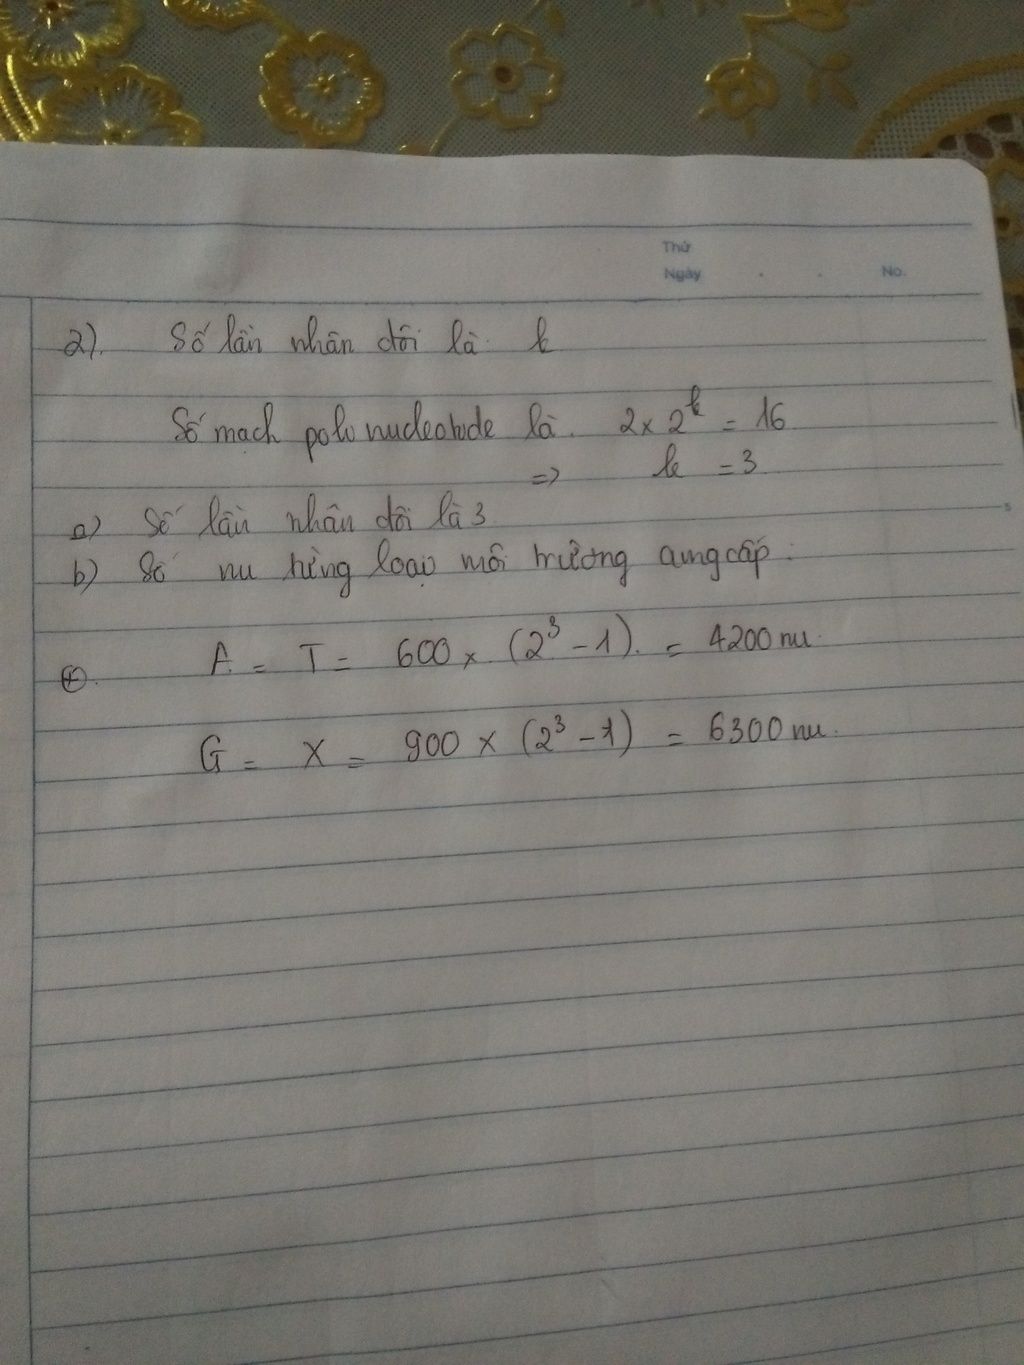 Thứ
Ngày . . No.
2). Số lần nhân đôi là k
Số mạch polinucleotide là. 2 x 2^k = 16
=> k = 3
a) Số lần nhân đôi là 3
b) Số nu từng loại môi trường cung cấp :
⊕. A = T = 600 x (2³ - 1). = 4200 nu.
G = X = 900 x (2³ - 1) = 6300 nu.